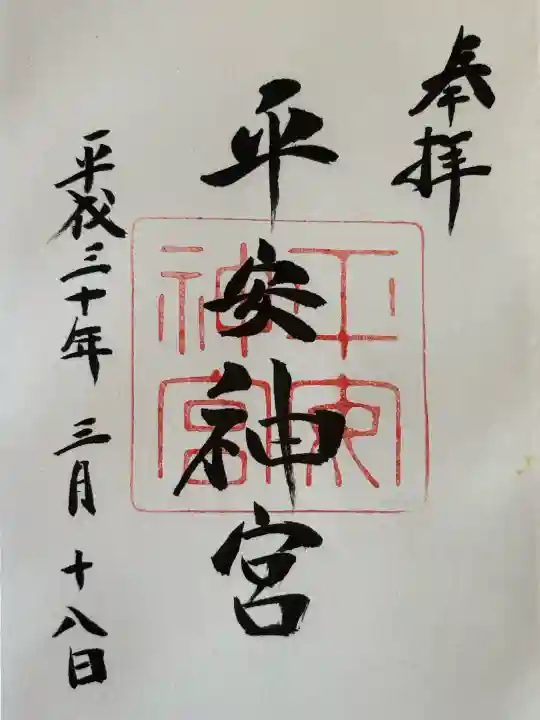 奉拝
平安神宮
平安神宮
平成三十年 三月 十八日